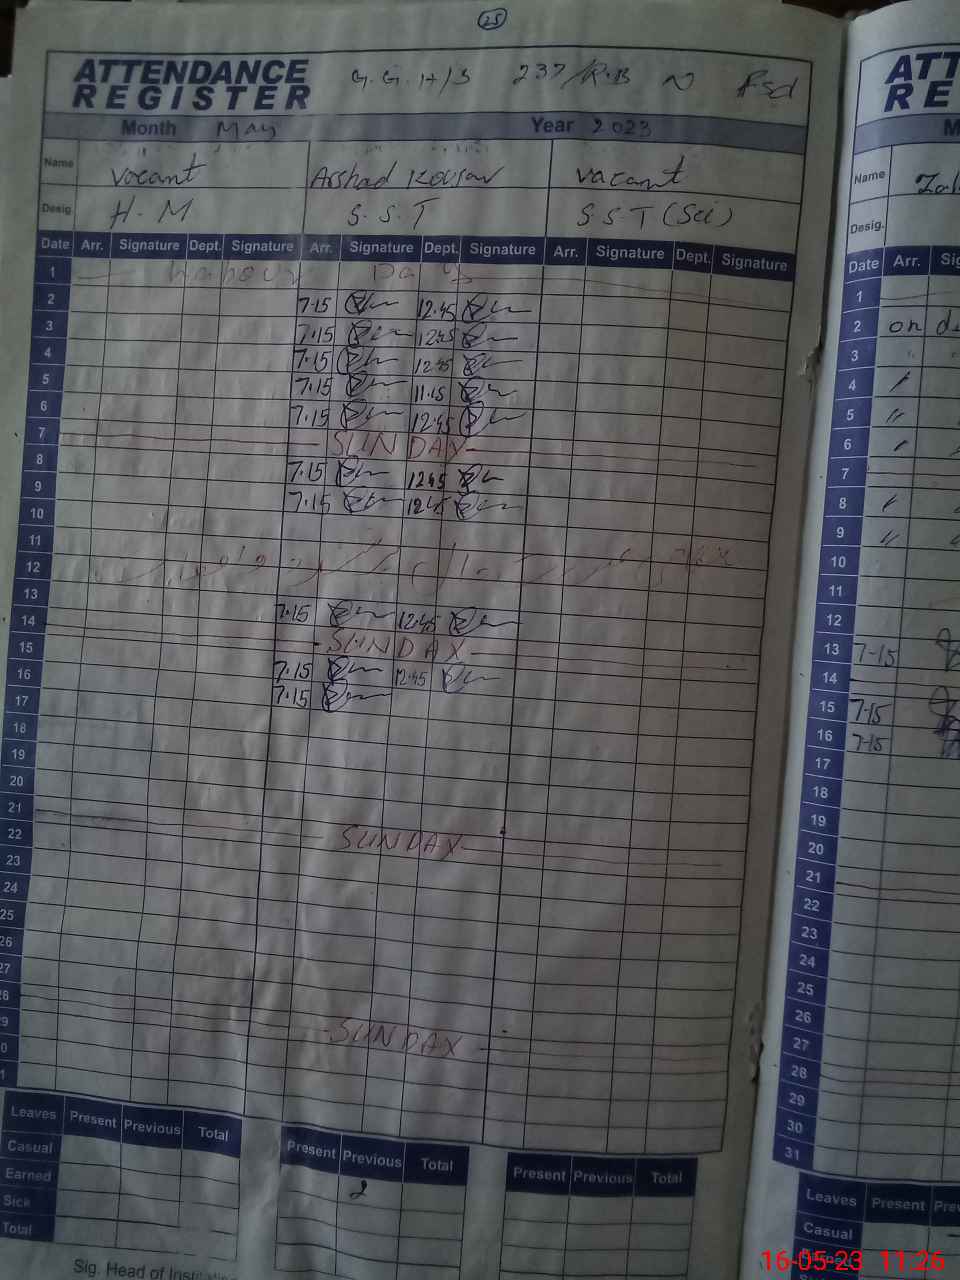 25
ATTENDANCE REGISTER G.G.H/S 237/R.B Fsd
Month May Year 2023
Name Vacant Arshad Kousar Vacant
Desig. H.M S.S.T S.S.T (Sci)
Date Arr. Signature Dept. Signature Arr. Signature Dept. Signature Arr. Signature Dept. Signature
1 Day
2 7-15 12:45
3 7.15 12:45
4 7.15 12:45
5 7.15 11.15
6 7.15 12:45
7 SUNDAY
8 7.15 12:45
9 7.15 12:45
10
11
12
13 7.15 12:45
14 SUNDAY
15 7.15 12:45
16 7.15
17
18
19
20
21 SUNDAY
22
23
24
25
26
27
28 SUNDAY
29
30
31
Leaves Present Previous Total Present Previous Total Present Previous Total
Casual 2
Earned
Sick
Total
Sig. Head of
ATT
RE
M
Name
Desig.
Date Arr. Sig
1
2 on
3
4
5 "
6
7
8
9 "
10
11
12
13 7-15
14
15 7.15
16 7-15
17
18
19
20
21
22
23
24
25
26
27
28
29
30
31
Leaves Present Pre
Casual
16-05-23 11:26